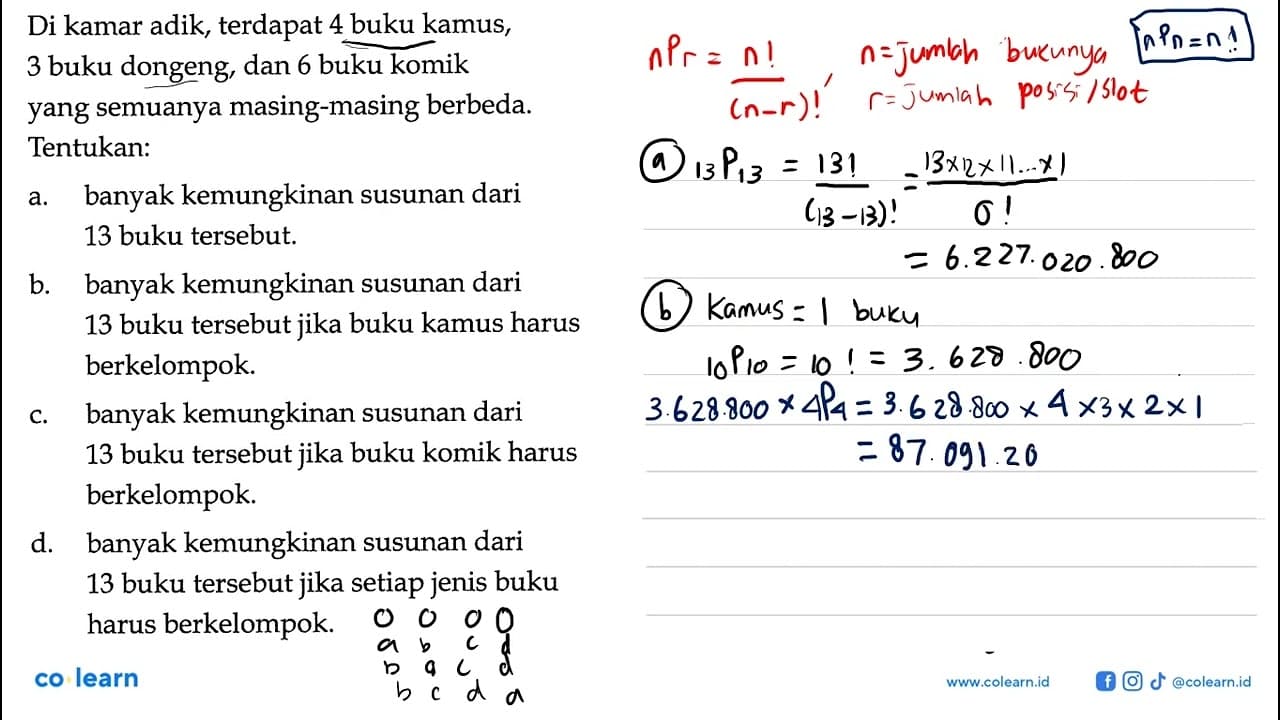 Di kamar adik, terdapat 4 buku kamus,
3 buku dongeng, dan 6 buku komik
yang semuanya masing-masing berbeda.
Tentukan:
a. banyak kemungkinan susunan dari
13 buku tersebut.
b. banyak kemungkinan susunan dari
13 buku tersebut jika buku kamus harus
berkelompok.
c. banyak kemungkinan susunan dari
13 buku tersebut jika buku komik harus
berkelompok.
d. banyak kemungkinan susunan dari
13 buku tersebut jika setiap jenis buku
harus berkelompok.
O O O O
a b c d
b a c d
b c d a
co learn
nPr = n! / (n-r)! , n = jumlah bukunya
r = jumlah posisi/slot
nPn = n!
a 13P13 = 13! / (13-13)! = 13x12x11...x1 / 0!
= 6.227.020.800
b Kamus = 1 buku
10P10 = 10! = 3.628.800
3.628.800 x 4P4 = 3.628.800 x 4 x 3 x 2 x 1
= 87.091.20
www.colearn.id
@colearn.id